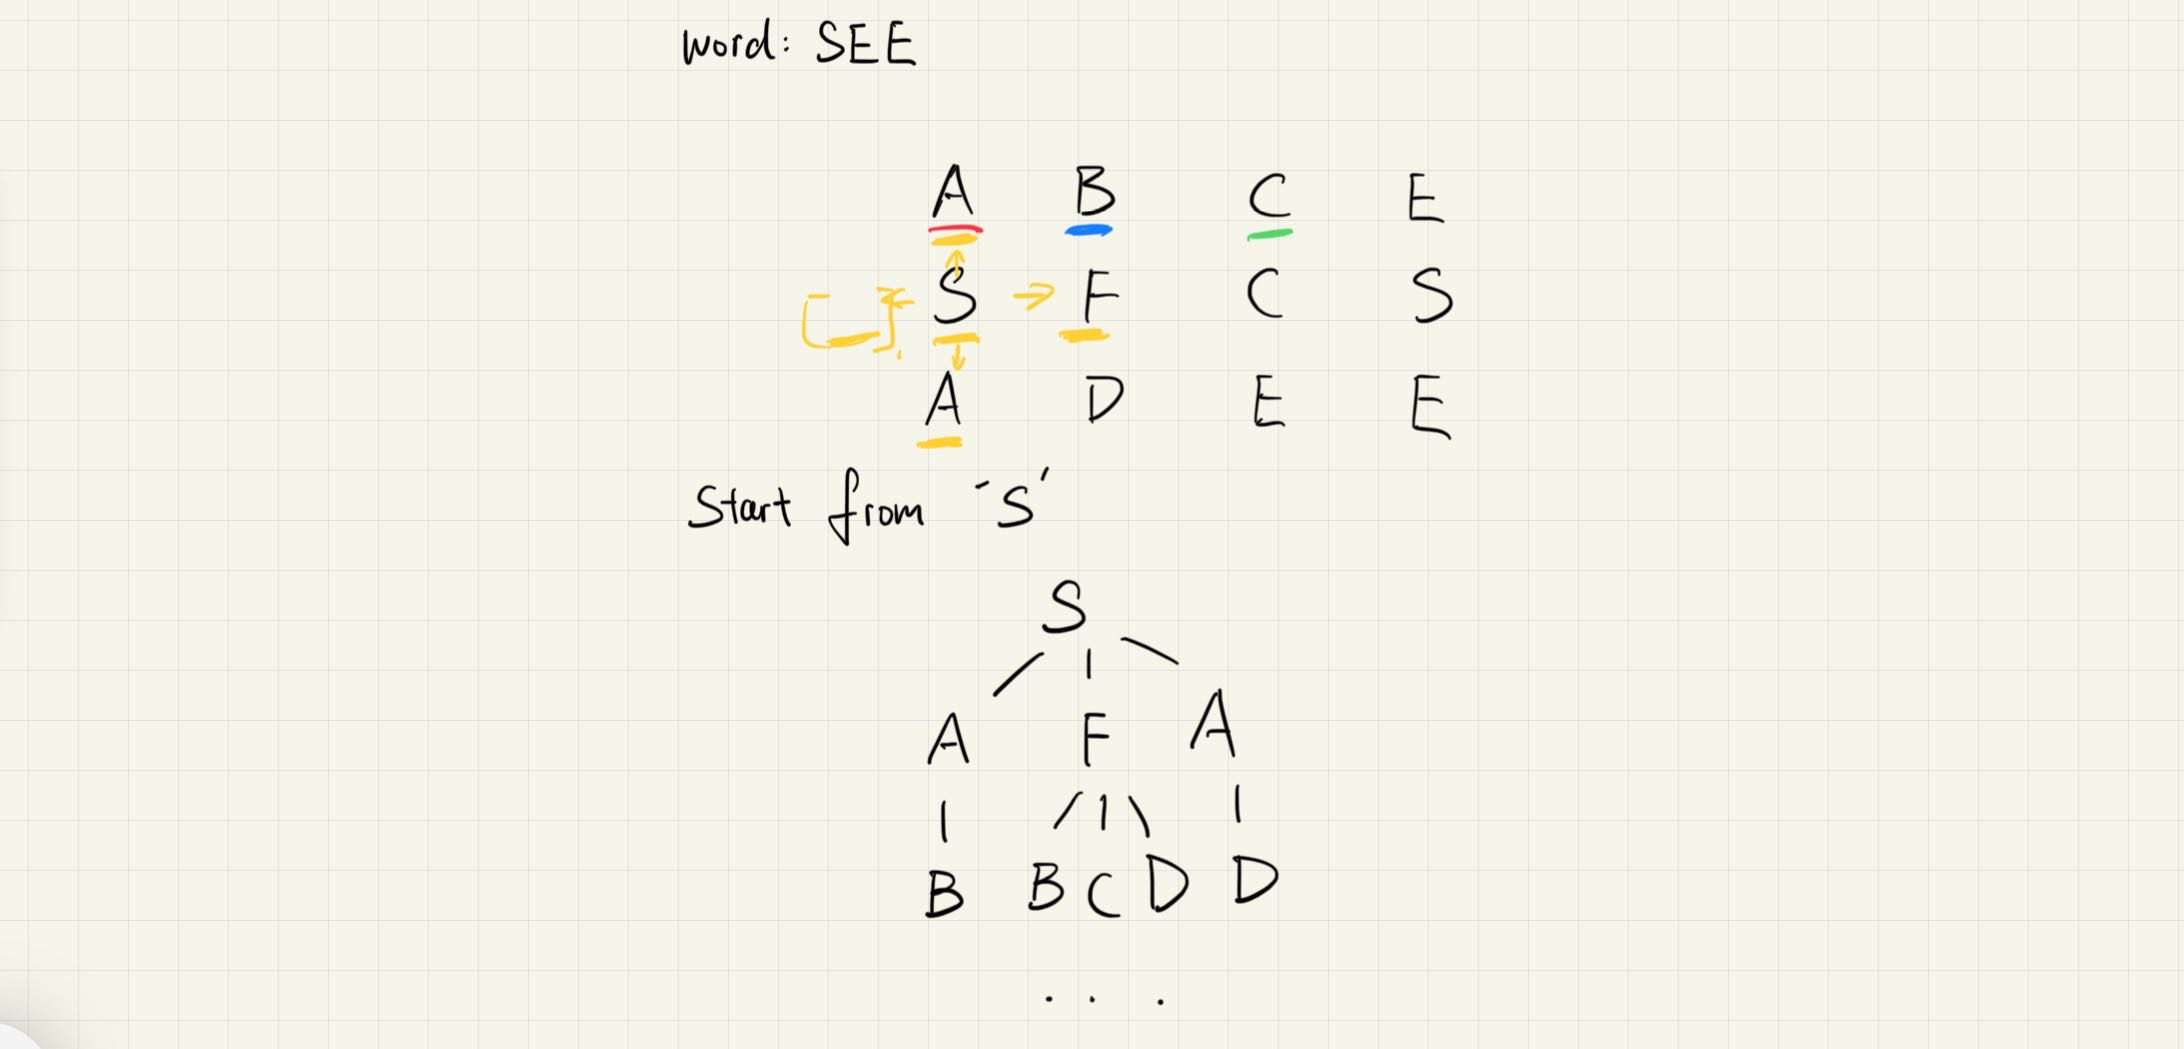 word: SEE
A B C E
[_] S F C S
A D E E
Start from 'S'
S
A F A
B B C D D
. . .